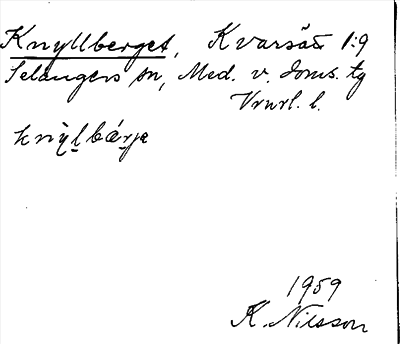 Knyllberget, Kvarsätt 1:9
Selångers sn, Med. v. doms. tg
Vrurl. l.
knỳl̯bár̯je
1959
K. Nilsson